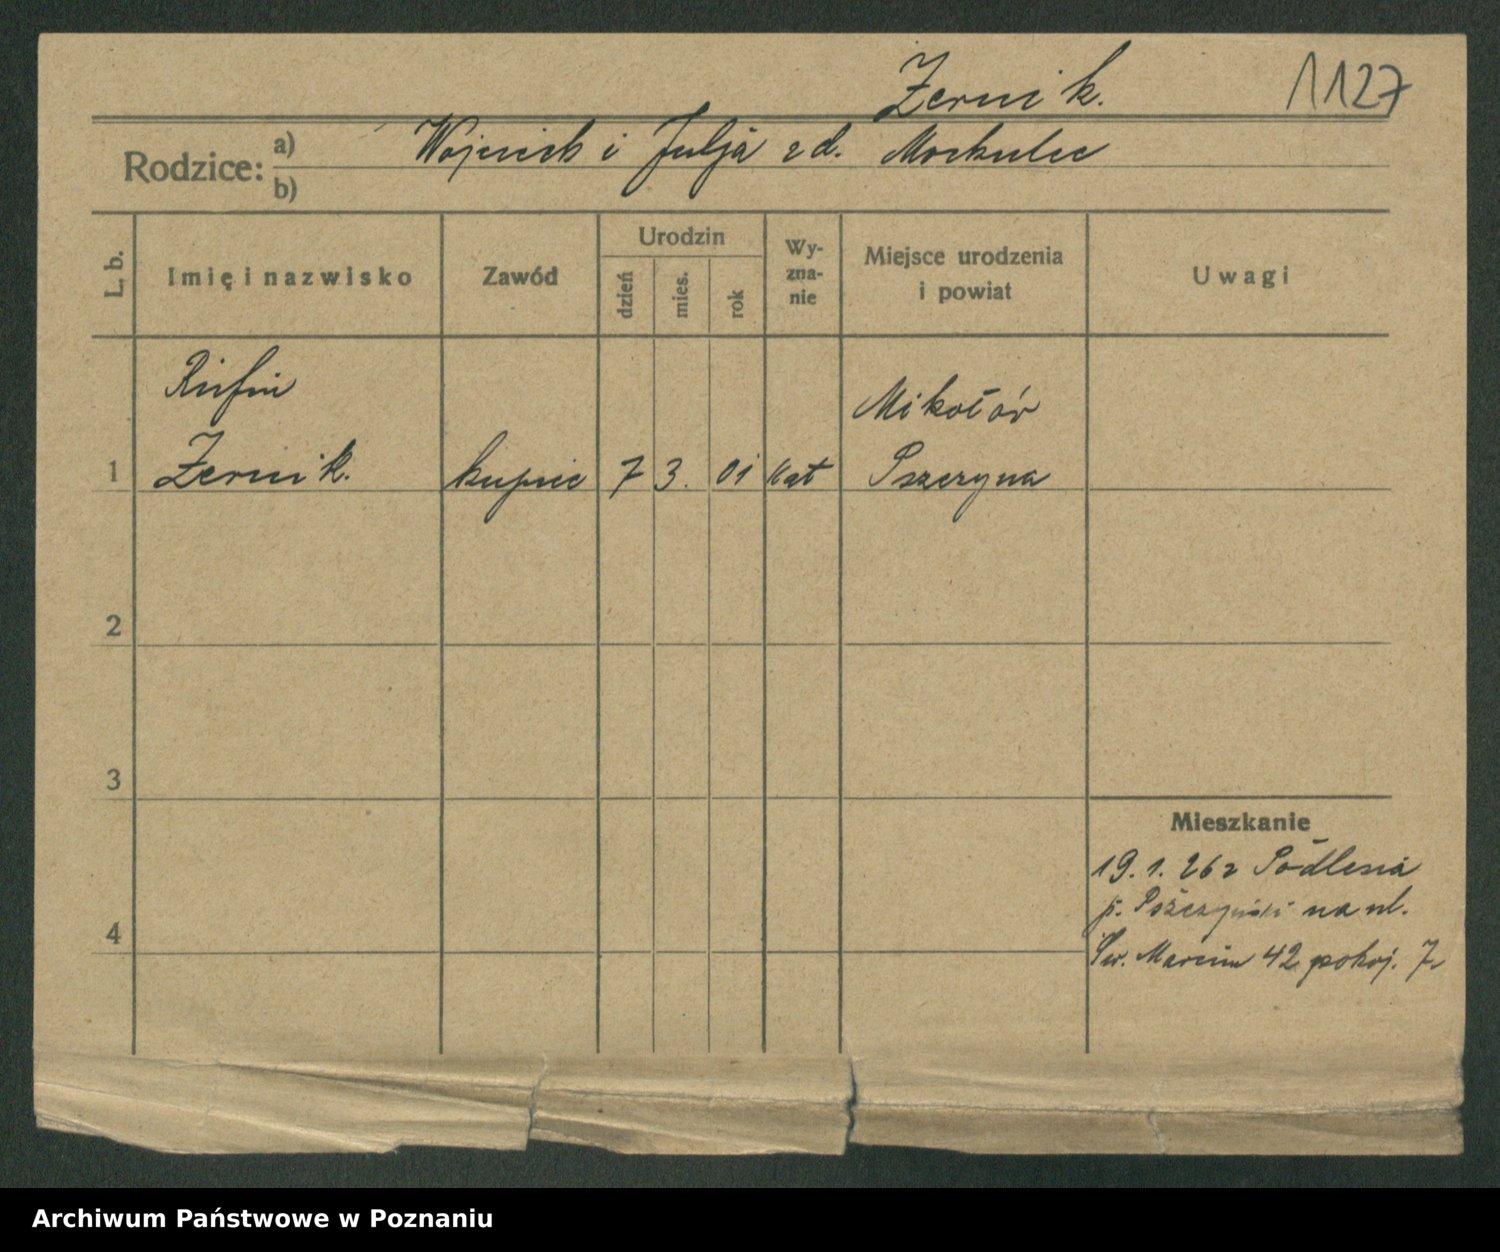 Żernik.
1127
Rodzice: a) Wojciech i Julja zd. Mockulec
b)
L. b.
Imię i nazwisko
Zawód
Urodzin
dzień
mies.
rok
Wy-
zna-
nie
Miejsce urodzenia
i powiat
Uwagi
Rufin
Mikołów
1 Żernik. kupiec 7 3. 01 kat Pszczyna
2
3
Mieszkanie
19.1.26 z Podlesia
p. Pszczyński na ul.
4
Św. Marcin 42 pokoj. 7.
Archiwum Państwowe w Poznaniu